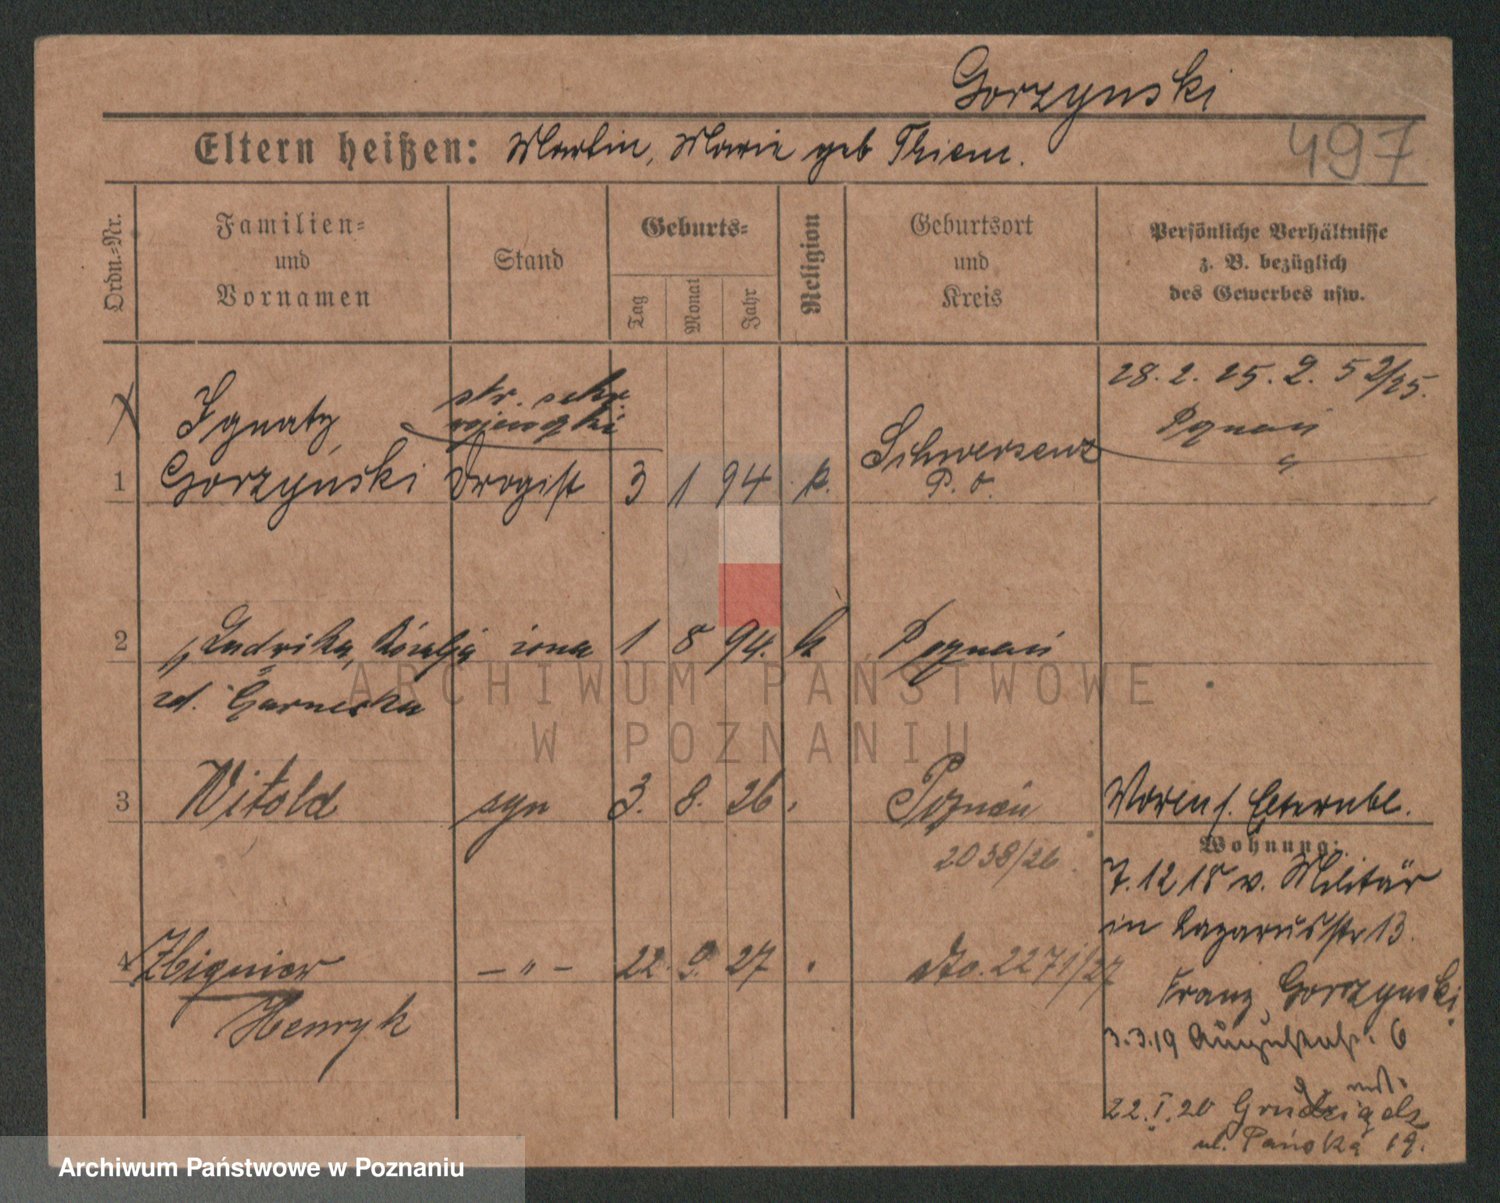 Gorzynski
497
Eltern heißen: Martin, Marie geb Thiem.
Ordn.-Nr.
Familien-
und
Vornamen
Stand
Geburts-
Tag
Monat
Jahr
Religion
Geburtsort
und
Kreis
Persönliche Verhältnisse
z. B. bezüglich
des Gewerbes usw.
28. 2. 25. 2. 5 2/25.
Poznań
Ignatz
str. schr
wojenski
1 Gorzynski Drogist 3 1 94 k. Schwersenz
P. O.
2 Ludwika, Rozalja żona 1 8 94. k Poznań
zd. Garnecka
3 Witold syn 3. 8. 26. Poznań
2038/26
4 Zbigniew — " — 22. 9. 27 dto. 2271/27
Henryk
Elternbl.
Wohnung:
7. 12 18 v. Militär
in Lazarusstr 13.
Franz Gorzynski
3.3.19 Augustastr. 6
22. I. 20
ul. Pańska 19.
ARCHIWUM PAŃSTWOWE
W POZNANIU
Archiwum Państwowe w Poznaniu